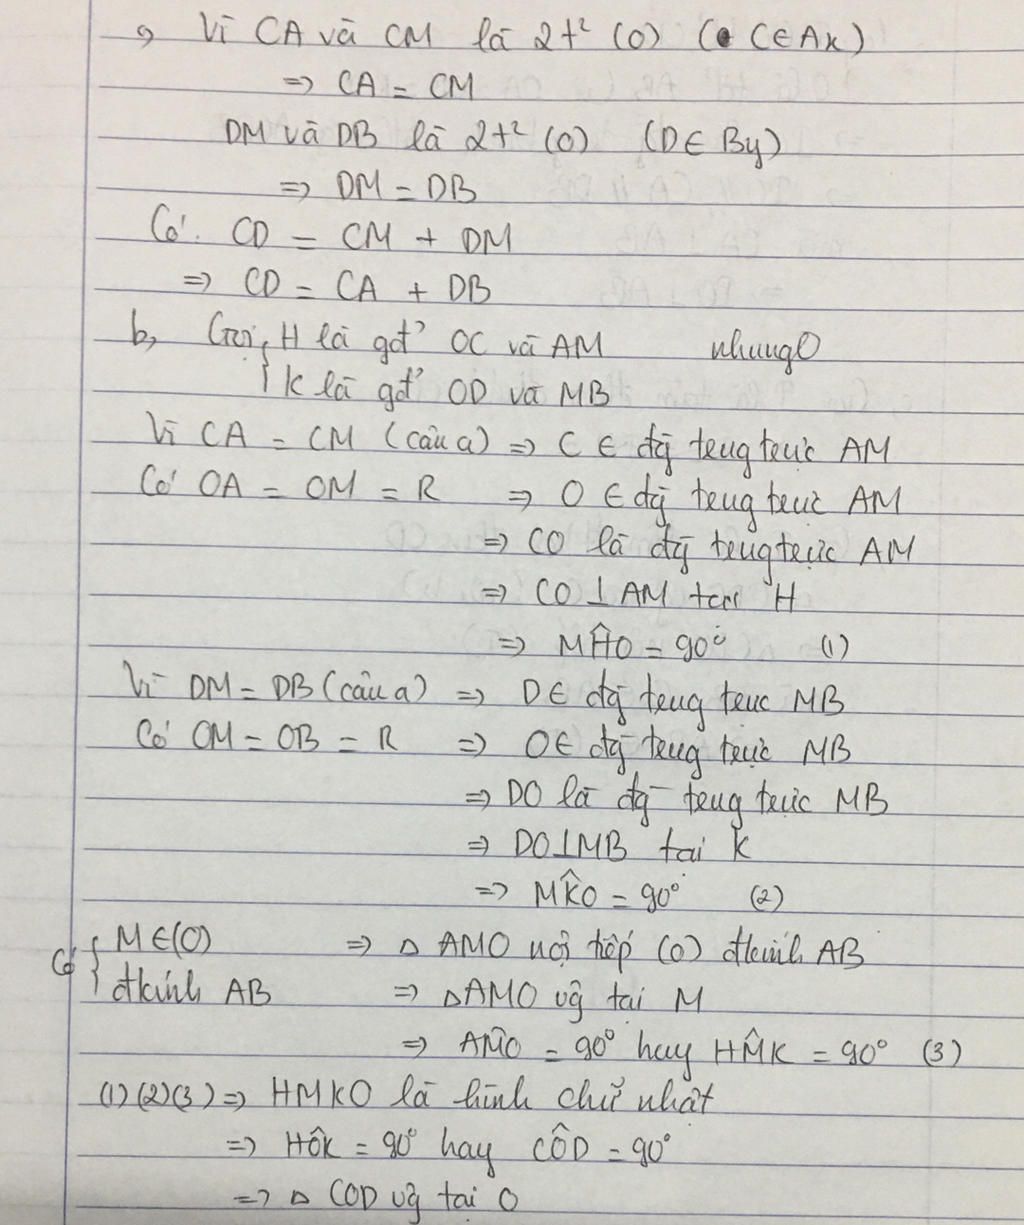 a, Vì CA và CM là 2t² (O) (C∈Ax)
=> CA = CM
DM và DB là 2t² (O) (D∈ By)
=> DM = DB
Có: CD = CM + DM
=> CD = CA + DB
b, Gọi { H là gđ' OC và AM
{ K là gđ' OD và MB
Vì CA = CM (câu a) => C ∈ đg trung trực AM
Có OA = OM = R => O ∈ đg trung trực AM
=> CO là đg trung trực AM
=> CO ⊥ AM tại H
=> MĤO = 90° (1)
Vì DM = DB (câu a) => D∈ đg trung trực MB
Có OM = OB = R => O∈ đg trung trực MB
=> DO là đg trung trực MB
=> DO⊥MB tại K
=> MK̂O = 90° (2)
Có { M∈(O) => △ AMO nội tiếp (O) đkính AB
{ đkính AB => △AMO vg tại M
=> AM̂O = 90° hay HM̂K = 90° (3)
(1)(2)(3) => HMKO là hình chữ nhật
=> HÔK = 90° hay CÔD = 90°
=> △ COD vg tại O